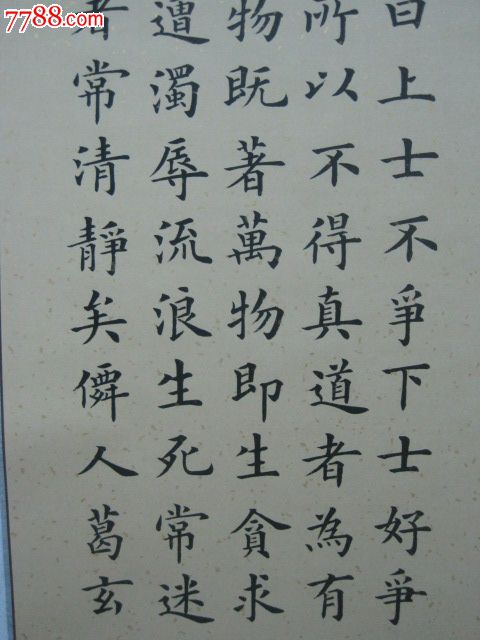 7788.com
曰上士不爭下士好爭
所以不得真道者為有
物既著萬物即生貪求
遭濁辱流浪生死常迷
者常清靜矣僊人葛玄